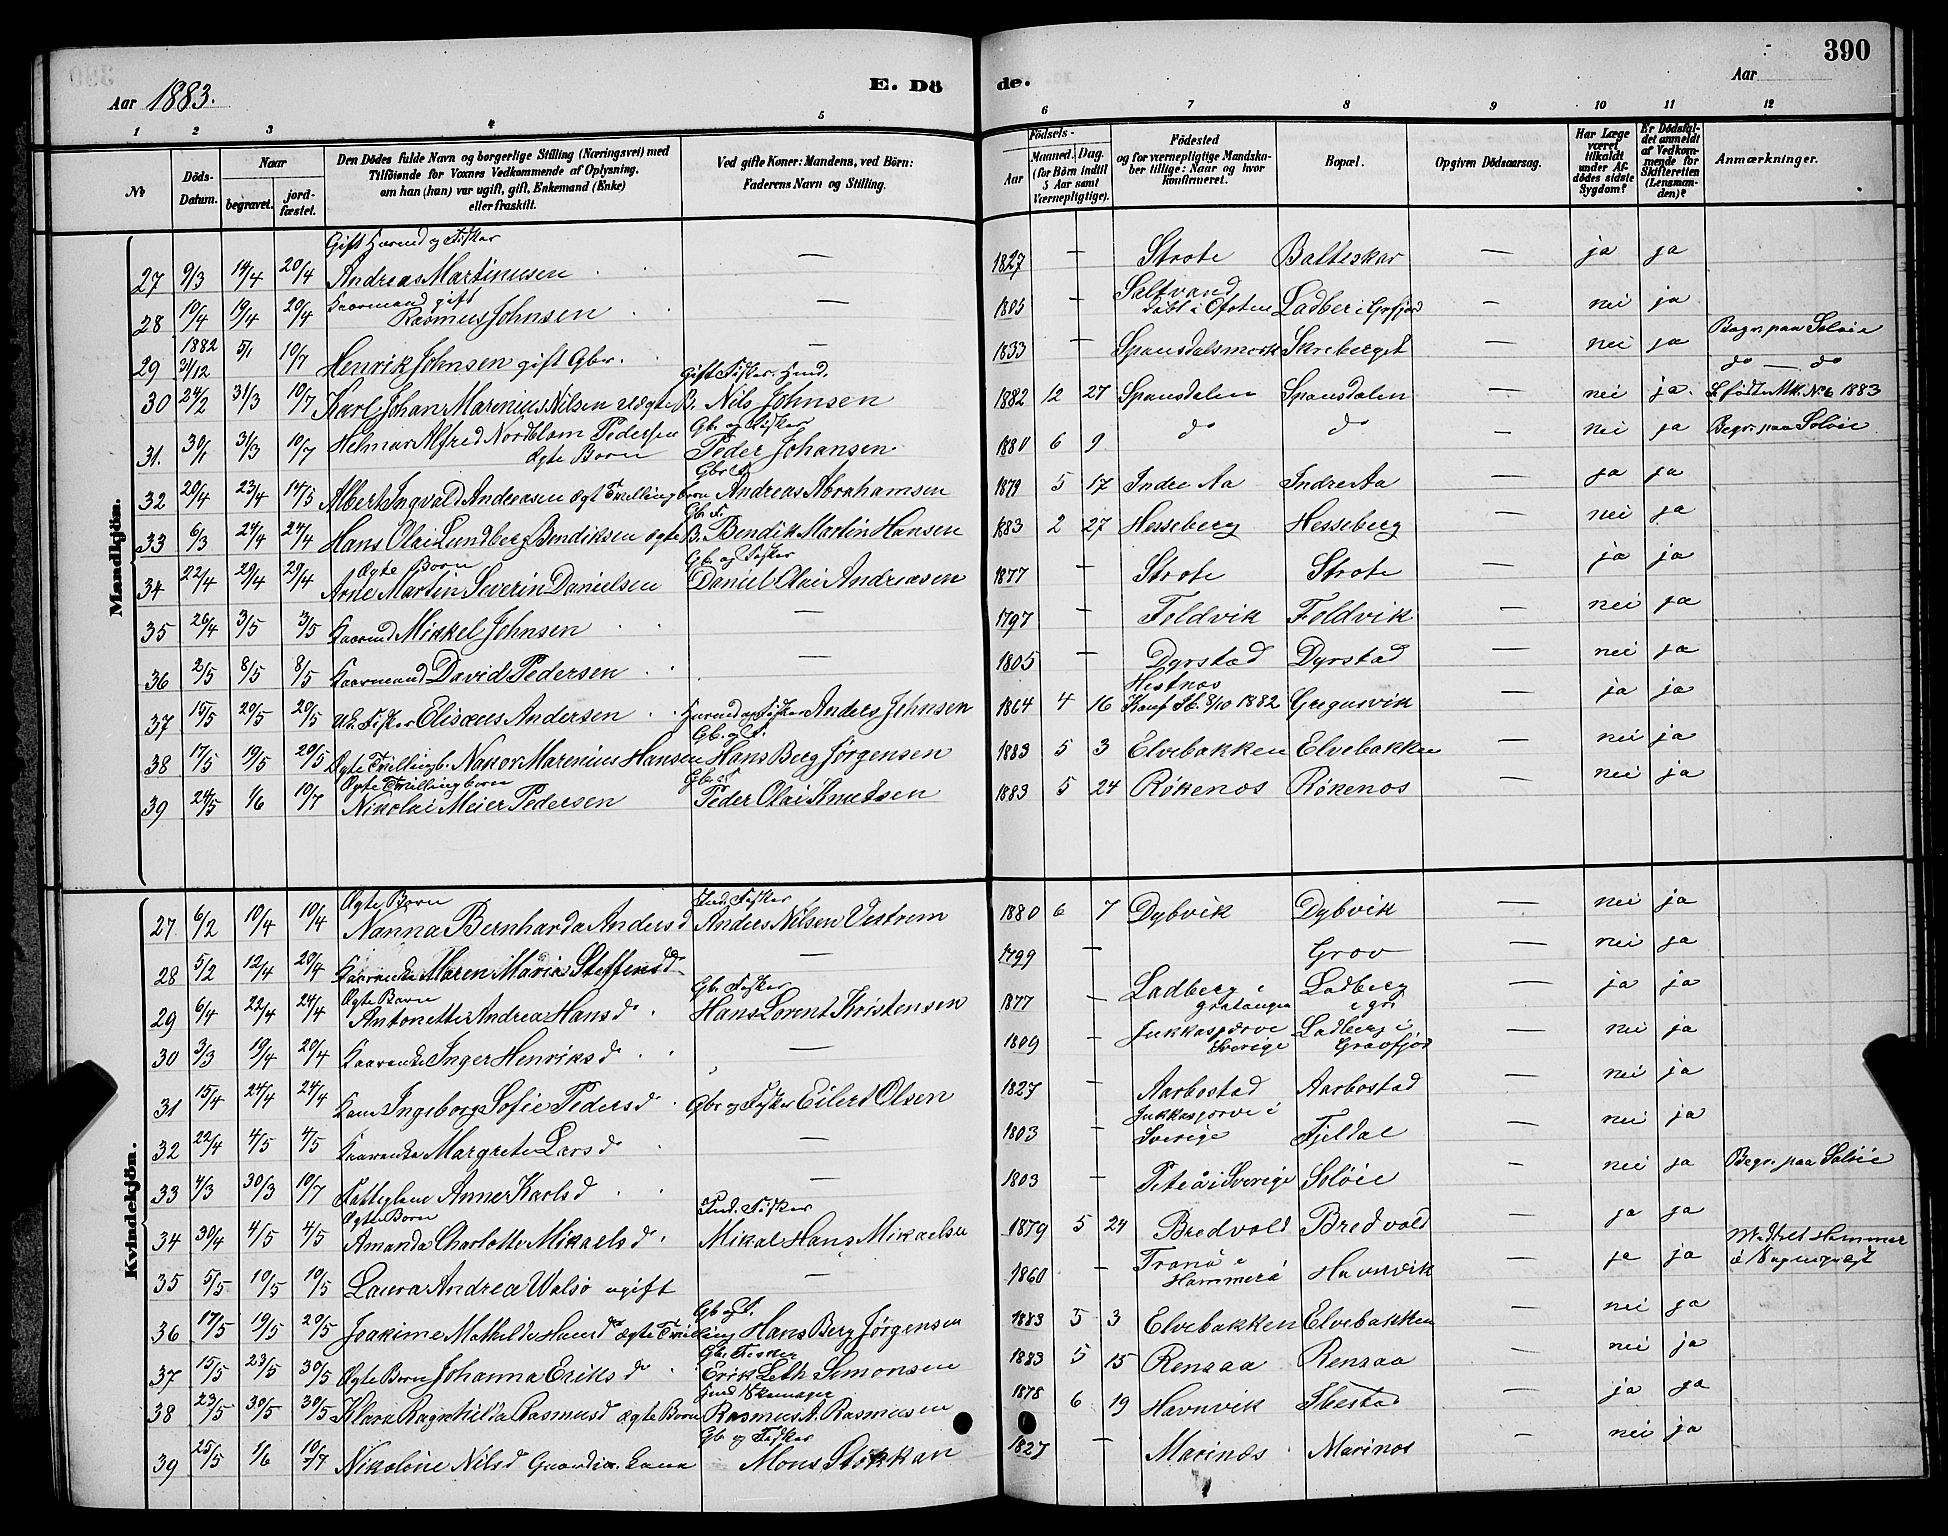 390
Aar 1883. E. Dö de. Aar
1 2 3 4 5 6 7 8 9 10 11 12
№ Döds-Datum. Naar begravet. jord-fæstet. Den Dödes fulde Navn og borgerlige Stilling (Næringsvei) med Tilföiende for Voxnes Vedkommende af Oplysning, om han (han) var ugift, gift, Enkemand (Enke) eller fraskilt. Ved gifte Koner: Mandens, ved Börn: Faderens Navn og Stilling. Födsels- Aar Maaned. Dag. (for Börn indtil 5 Aar samt Værnepligtige). Födested og for værnepligtige Mandskaber tillige: Naar og hvor konfirmeret. Bopæl. Opgiven Dödsaarsag. Har Læge været tilkaldt under Afdödes sidste Sygdom? Er Dödsfaldet anmeldt af Vedkommende for Skifteretten (Lensmanden)? Anmærkninger.
Mandkjön.
27 9/3 14/4 20/4 Gift Huusmd og Fisker Andreas Martinusen — 1827 — Strote Balteskar — ja ja
28 10/4 19/4 20/4 Kaarmand gift Rasmus Johnsen — 1805 — Saltvand döbt i Ofoten Ladber i Grfjord — nei ja
29 1882 31/12 5/1 10/7 Henrik Johnsen gift Gbr. — 1833 — Spansdalsmark Skreberget — nei ja Begr. paa Soløie
30 24/2 31/3 10/7 Karl Johan Marenius Nilsen uægte B. Gift Fisker. Huusd. Nils Johnsen 1882 12 27 Spansdalen Spansdalen — nei ja. do — do Se födte Mk. No 6 1883
31. 30/1 31/3 10/7 Helmar Alfred Nordblom Pedersen Ægte Barn Gb. og Fisker Peder Johansen 1881 6 9 do do — nei ja Begr. paa Soløie
32 20/4 23/4 14/5 Albert Ingvald Andreasen ægt Tvillingbarn Gbr. Andreas Abrahamsen 1879 5 17 Indre Aa Indre Aa — ja ja
33 6/3 24/4 24/4 Hans Olai Lundberg Bendiksen ægte B. Gb. F. Bendik Martin Hansen 1883 2 27 Hesseberg Hesseberg — nei ja
34 22/4 29/4 29/4 Ægte Barn Arne Martin Severin Danielsen Gb. og Fisker Daniel Olai Andreasen 1877 — Strote Strote — ja ja
35 26/4 3/5 3/5 Kaarmd Mikkel Johnsen — 1797 — Foldvik Foldvik — nei ja
36 2/5 8/5 8/5 Kaarmand David Pedersen — 1805 — Dyrstad Dyrstad — nei ja
37 15/5 20/5 20/5 Ug. Fisker Elisæus Andersen Husmd og Fisker Anders Johnsen 1864 4 16 Hestnes Konf. Ib. 8/10 1882 Gregusvik — ja ja
38 17/5 19/5 20/5 Ægte Tvillingb. Nakor Marenius Hansen Gb. og F. Hans Berg Jørgensen 1883 5 3 Elvebakken Elvebakken — nei ja
39 24/5 1/6 10/7 Ægte Tvillingbarn Nikolai Meier Pedersen Gb. F. Peder Olai Knutsen 1883 5 24 Røkenes Røkenes — nei ja
Kvindekjön.
27 6/2 10/4 10/4 Ægte Barn Nanna Bernharda Andersd Ind. Fisker Anders Nilsen Vestrem 1880 6 7 Dybvik Dybvik — nei ja
28 5/2 12/4 20/4 Kaarenke Maren Maria Steffensd — 1799 — Grov — nei ja
29 6/4 22/4 24/4 Ægte Barn Antonette Andrea Hansd Gb. Fisker Hans Lorent Kristensen 1877 — Ladberg i Gratangen Ladberg i gr. — ja ja
30 3/3 19/4 20/4 Kaarenke Inger Henriksd — 1809 — Jukkasjærve Sverige Ladberg i Gravfjord — nei ja
31 15/4 24/4 24/4 Kone Ingeborg Sofie Pedersd Gbr og Fisker Eilerd Olsen 1827 — Aarbostad Aarbostad — nei ja
32 22/4 4/5 4/5 Kaarenke Margrete Larsd — 1803 — Jukkasjærve i Sverige Fjeldal — nei ja
33 4/3 30/3 10/7 Fattiglem Anne Karlsd — 1803 — Piteå i Sverige Soløie — nei ja Begr. paa Soløie
34 30/4 4/5 4/5 Ægte Barn Amanda Charlotte Mikaelsd Ind. Fisker Mikal Hans Mikaelsen 1879 5 24 Bredvold Bredvold — ja ja
35 5/5 10/5 10/5 Laura Andrea Walsø ugift — 1860 — Tranø i Hammerø Havnvik — ja ja
36 17/5 19/5 20/5 Joakime Mathilde Hansd ægte Tvilling Gb og F. Hans Berg Jørgensen 1883 5 3 Elvebakken Elvebakken — nei ja
37 15/5 23/5 30/5 Ægte Barn Johanna Eriksd Gb. Fisker Erik Leth Simonsen 1883 5 15 Rensaa Rensaa — nei ja
38 23/5 30/5 30/5 Klara Ragnhilda Rasmusd ægte Barn Huusd Skomager Rasmus A. Rasmusen 1878 6 19 Havnvik Ibestad — ja ja
39 25/5 1/6 10/7 Nikoline Nilsd Kone Gb og Fisker Mons Stokkan 1827 — Marinæs Marinæs — nei ja